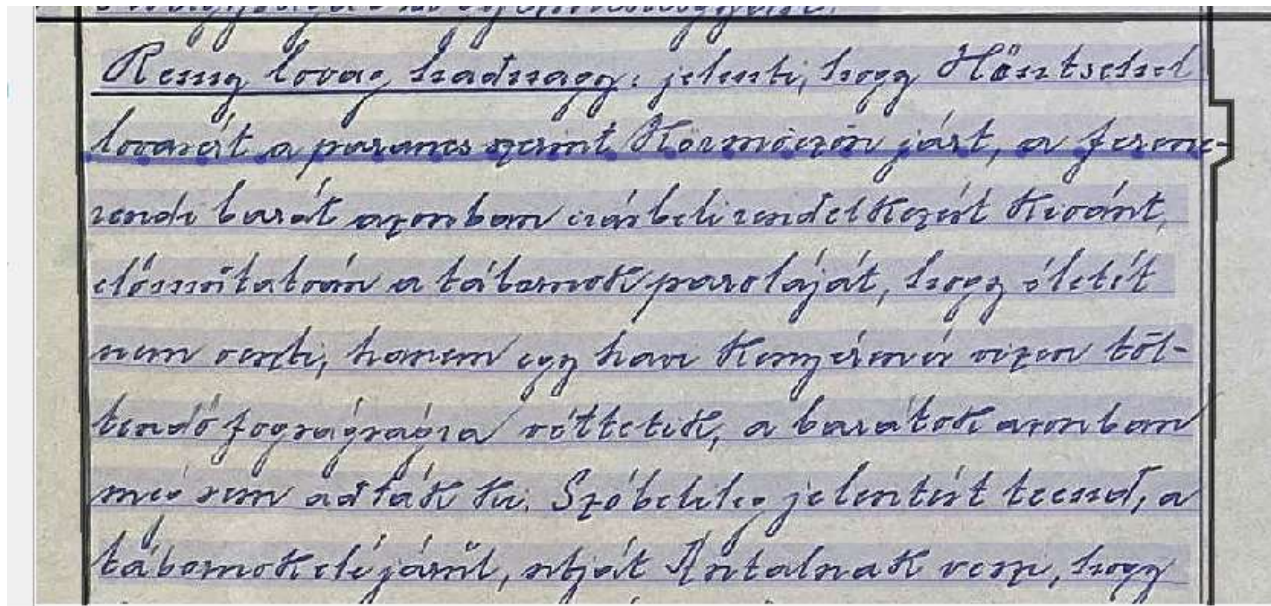 Remig lovag hadnagy: jelenti, hogy Höntschel
lovasért a parancs szerint Körmöczön járt, a ferenc-
rendi barát azonban írásbeli rendelkezést kivánt,
előmutatván a tábornok paroláját, hogy életét
nem veszti, hanem egy havi kenyéren és vizen töl-
tendő fogságra vettetik, a barátok azonban
még sem adták ki. Szóbelileg jelentést teend, a
tábornok elé járul, útját Antalnak veszi, hogy